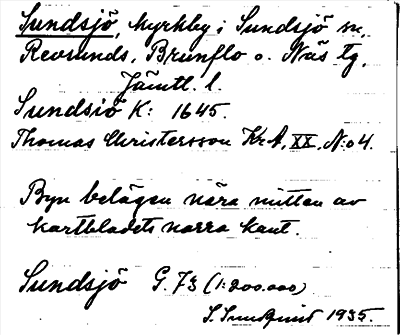 Sundsjö, kyrkby i Sundsjö sn.
Revsunds, Brunflo o. Näs tg.
Jämtl. l.
Sundsiö K: 1645.
Thomas Christersson Kr.A. XX. N:o 4.
Byn belägen nära mitten av
kartbladets norra kant.
Sundsjö G. 73 (1:200.000)
S. Sundquist 1935.